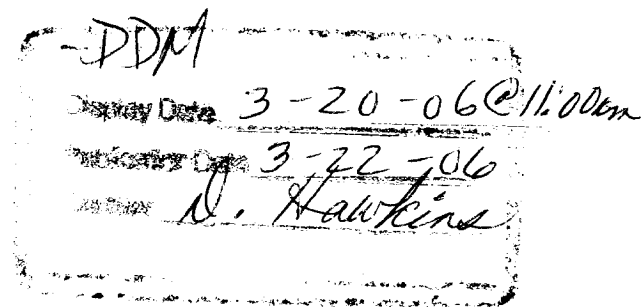 -DDM
Display Date 3-20-06@11:00am
Publication Date 3-22-06
D. Hawkins